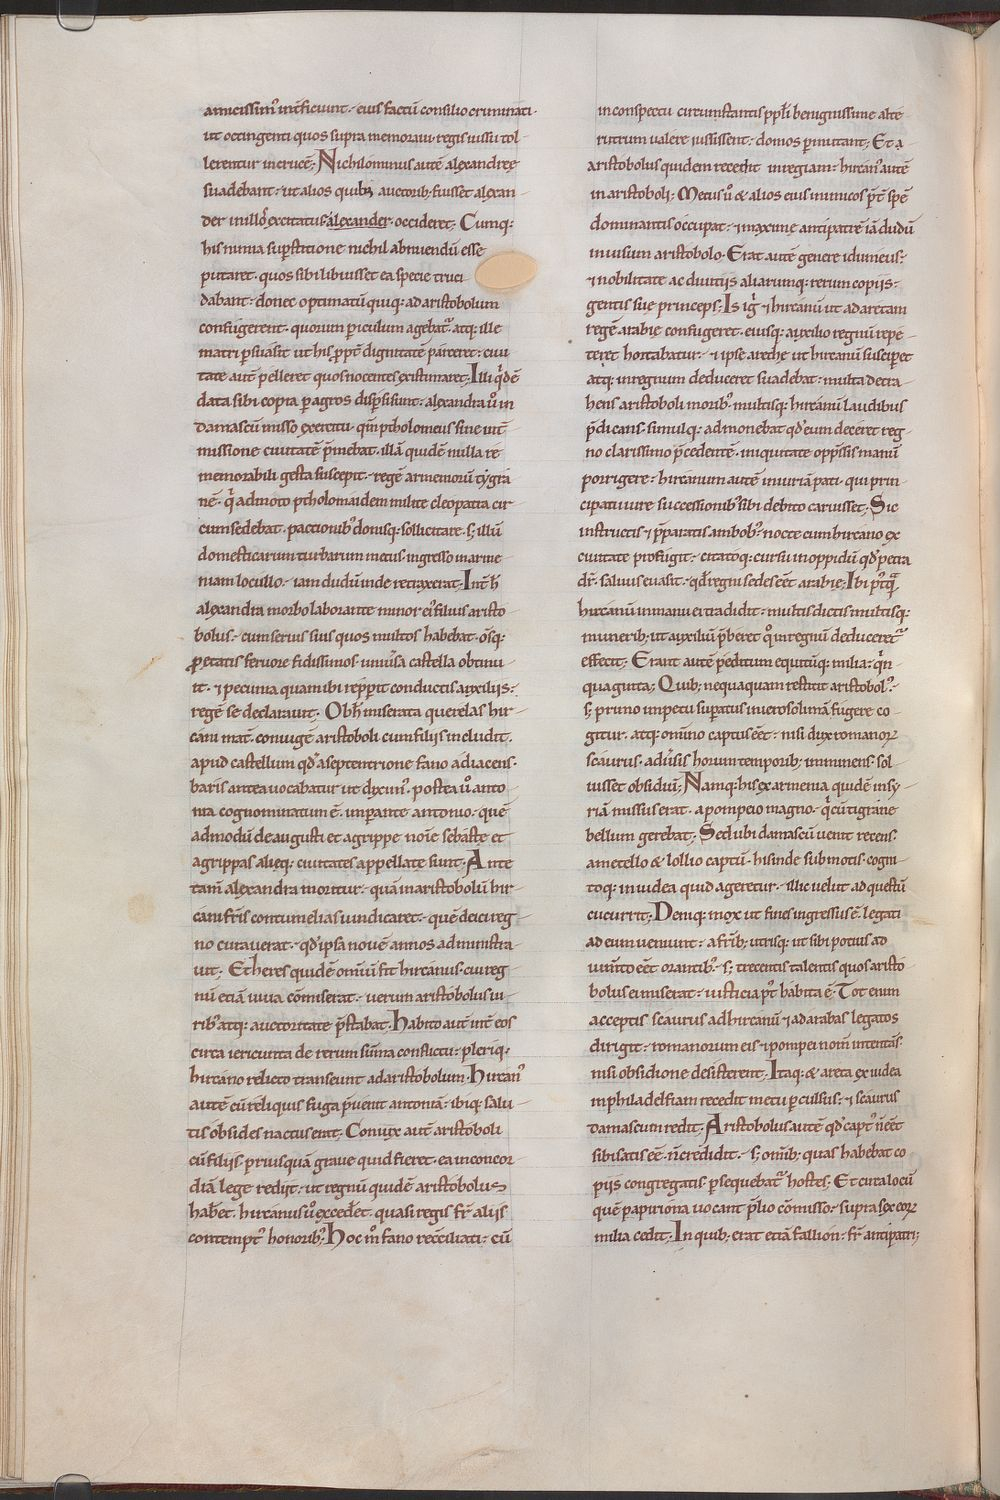 amicissimꝰ int̄ficiunt · eius factū consilio criminati ·
ut octingenti quos supra memoraui · regis iussu tol-
lerentur in crucē; Nichilominus autē alexandrę
suadebant · ut alios quibꝫ auctoribꝫ fuisset alexan-
der in illos excitatus alexander · occideret; Cumqꝫ
his nimia sup̄stitione nichil abnuendū esse
putaret · quos sibi libuisset ea specie truci
dabant · donec optimatū quiqꝫ ad aristobolum
confugerent · quorum ꝑiculum agebat᷑ · atqꝫ ille
matri ꝑsuasit ut his ꝓpt̄ dignitatē parceret · ciui-
tate aut̄ pelleret quos nocentes existimaret; Illi qͥdē
data sibi copia ꝑ agros disp̄si sunt · alexandra uͦ in
damascū misso exercitu · qm̄ ptholomeus sine int̄-
missione ciuitatē p̄mebat · illā quidē nulla rē
memorabili gesta suscepit · regē armeniorū tygra-
nē · qͥ admoto ptholomaidem milite cleopatra cir-
cumsedebat · pactionibꝰ donisqꝫ sollicitare · sꝫ illū
domesticarum turbarum metus · ingresso in arme-
niam locullo · iam dudū inde retraxerat; Int̄ h̄
alexandra morbo laborante minor eiꝰ filius aristo-
bolus · cum seruis suis quos multos habebat · om̄sqꝫ
ꝓ ętatis feruore fidissimos · uniūsa castella obtinu-
it · ⁊ pecunia quam ibi reꝑperit conductis auxiliis ·
regē se declarauit · Ob h̄ miserata querelas hir-
cani mat̄ · coniugē aristoboli cum filiis includit ·
apud castellum qd̄ a septentrione fano adiacens ·
baris antea uocabatur ut diximꝰ · postea uͦ anto-
nia cognominatum ē · imperante antonio · quē
admodū de augusti et agrippe noīe sebastę et
agrippas alięqꝫ ciuitates appellatę sunt; Ante
tam̄ alexandra moritur · quā in aristobolū hir-
cani fr̄is contumelias uindicaret · quē deici reg-
no curauerat · qd̄ ipsa nouē annos administra-
uit; Et heres quidē omniū fit hircanus · cui reg-
nū etiā uiua cōmiserat · uerum aristobolus ui-
ribꝰ atqꝫ auctoritate p̄stabat · habito aut̄ int̄ eos
circa iericunta de rerum sūma conflictu · pleriqꝫ
hircano relicto transeunt ad aristobolum · Hircanꝰ
autē cū reliquis fuga p̄uenit antoniā · ibiqꝫ salu-
tis obsides nactus erat; Coniux aut̄ aristoboli
cū filiis · priusquā graue quid fieret · ea in concor-
diā lege rediit · ut regnū quidē aristobolus
hab̄et · hircanus uͦ excedet · quasi regis fr̄ aliis
contemptꝰ honoribꝰ; Hoc m̊ in fano reconciliati · cū
in conspectu circumstantis pp̄li benignissime alte-
rutrum ualere iussissent · domos p̄mutant; Et a-
ristobolus quidem recedit in regiam · hircanꝰ autē
in aristoboli; Metus uͦ & alios eius inimicos p̄t̄ spē
dominantis occupat · ⁊ maxime antipatrē iā dudū
inuisum aristobolo · Erat autē genere idumeus ·
⁊ nobilitate ac diuitiis aliarumqꝫ rerum copiis ·
gentis sue princeps; Is igͥ ⁊ hircanū ut ad aretam
regē arabię confugeret · eiusqꝫ auxilio regnū repe-
teret hortabatur · ⁊ ipse arechę ut hircanū susciperet
atqꝫ in regnum deduceret suadebat · multa detra-
hens aristoboli moribꝰ · multisqꝫ hircanū laudibus
p̄dicans · simulqꝫ admonebat qd̄ eum deceret reg-
no clarissimo p̄cedentē · iniquitate opp̄ssis manū
porrigere · hircanum autē iniuriā pati · qui prin-
cipatu iure successionibꝰ sibi debito caruisset; Sic
instructis ⁊ p̄paratis ambobꝰ · nocte cum hircano ex
ciuitate profugit · citatoqꝫ cursu in oppidū qd̄ petra
dr̄ · saluus euasit · qd̄ regni sedes eēt arabię; Ibi postqͣ
hircanū in manu ei tradidit · multis dictis multisqꝫ
muneribꝫ ut auxiliū p̄beret qͦ in regnū deduceret᷑
effecit; Erant autē peditum equitūqꝫ milia · qͥn-
quaginta; Quibꝫ nequaquam restitit aristobolꝰ ·
sꝫ primo impetu supatus in ierosolimā fugere co-
gitur · atqꝫ om̄ino captus eēt · nisi dux romanoꝝ
scaurus · adūsis horum temporibꝫ imminens · sol-
uisset obsidiū; Namqꝫ his ex armenia quidē in sy-
riā missus erat · a pompeio magno · qͥ cū tigrane
bellum gerebat; Sed ubi damascū uenit recens
a metello & lollio captū · his inde submotis · cogni-
toqꝫ in iudea quid ageretur · illic uelut ad questū
cucurrit; Deniqꝫ mox ut fines ingressus ē · legati
ad eum ueniunt · a fr̄ibꝫ utrisqꝫ ut sibi potius ad-
iumto eēt orantibꝰ · sꝫ trecentis talentis quos aristo-
bolus ei miserat · iusticia p̄t habita ē · Tot enim
acceptis scaurus ad hircanū ⁊ ad arabas legatos
dirigit · romanorum eis ⁊ pompei nom̄ intentās
nisi obsidione desisterent; Itaqꝫ & areta ex iudea
in philadelfiam recedit metu ꝑculsus · ⁊ scaurus
damascum redit; Aristobolus autē qd̄ captꝰ n̄ eēt
sibi satis eē n̄ credidit · sꝫ om̄ibꝫ quas habebat co-
piis congregatis ꝑsequebat᷑ hostes; Et circa locū
quē papirona uocant p̄lio cōmisso · supra sex eoꝝ
milia cedit; In quibꝫ erat etiā fallion · fr̄ antipatri;